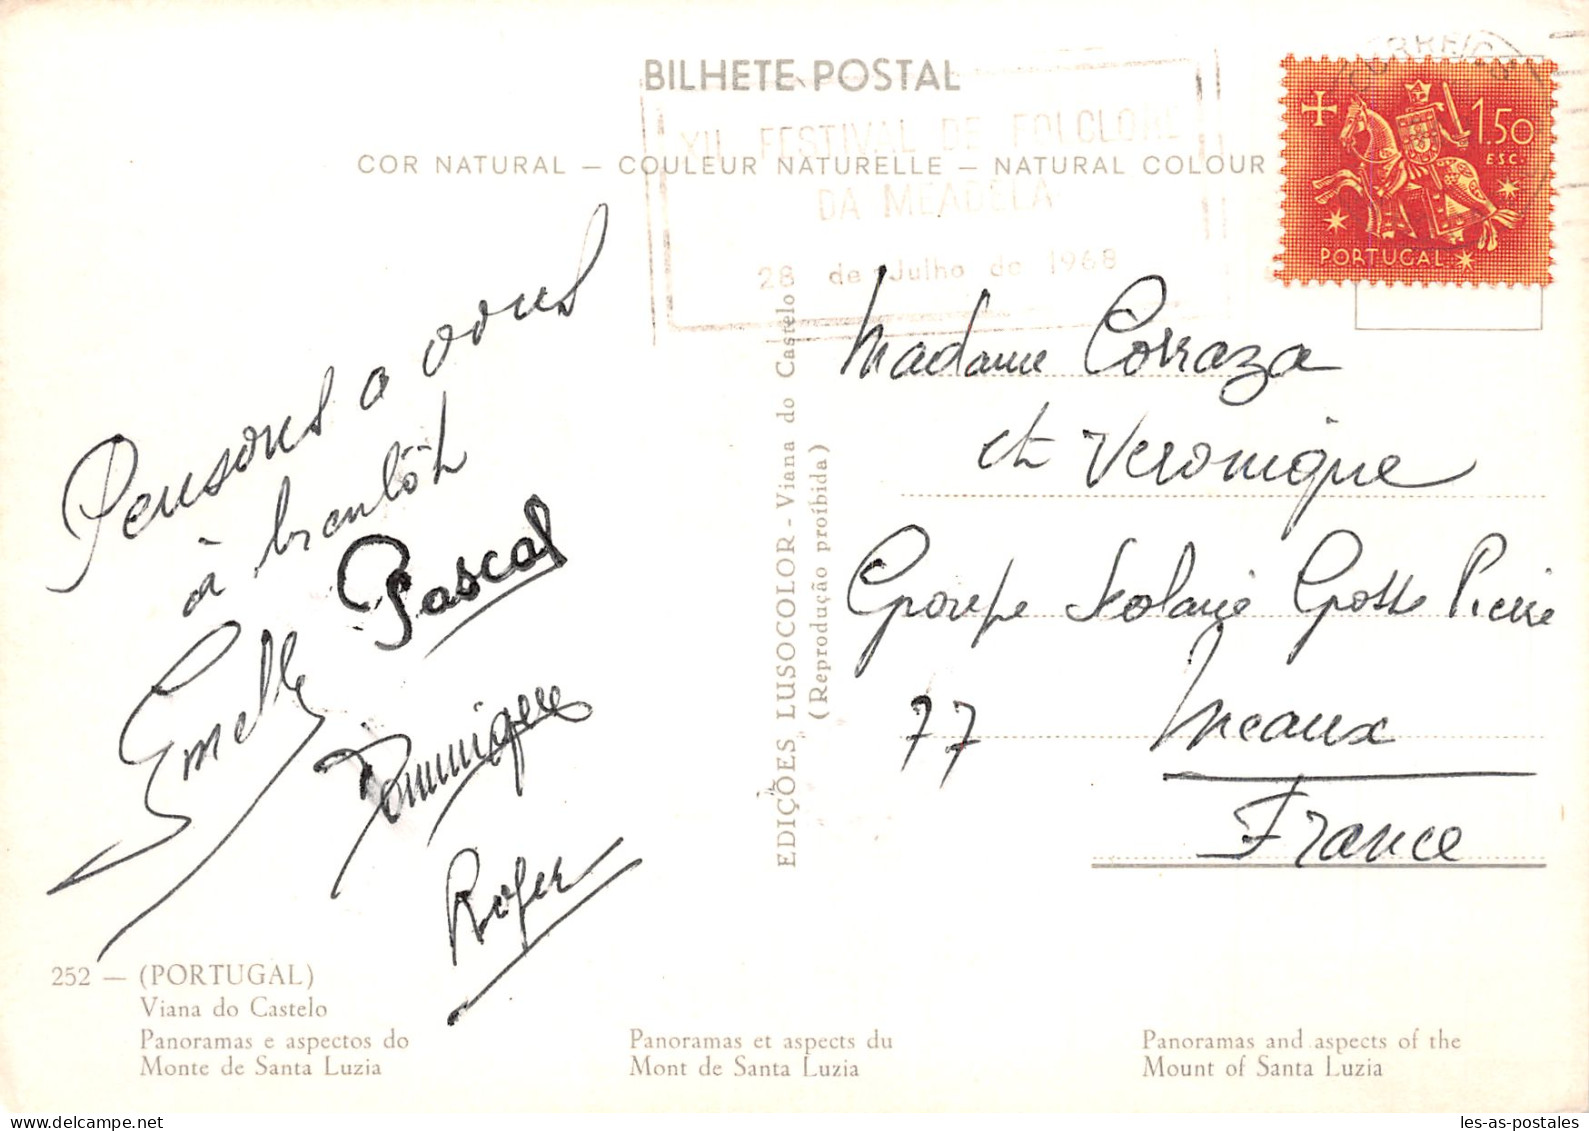 BILHETE-POSTAL
COR NATURAL — COULEUR NATURELLE — NATURAL COLOUR
XII FESTIVAL DE FOLCLORE
DA MEADELA
28 de Julho de 1968
CORREIOS
1.50
ESC.
PORTUGAL
Pensons a vous
à bientôt
Pascal
Dominique
Roger
EDIÇÕES LUSOCOLOR - Viana do Castelo
(Reprodução proíbida)
Madame Corraza
et Veronique
Groupe Scolaire Grosse Pierre
77 Meaux
France
252 — (PORTUGAL)
Viana do Castelo
Panoramas e aspectos do
Monte de Santa Luzia
Panoramas et aspects du
Mont de Santa Luzia
Panoramas and aspects of the
Mount of Santa Luzia
les-as-postales